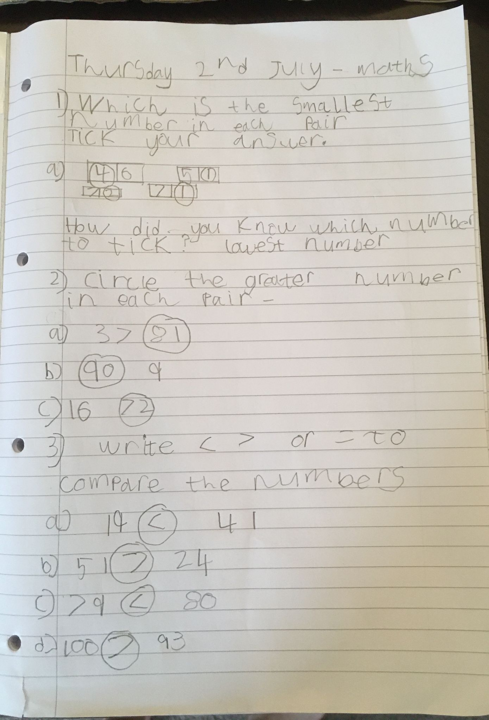 Thursday 2nd July - maths
1) Which is the smallest
number in each pair
Tick your answer.
a) 46 50
72 71
How did you know which number
to tick? lowest number
2) Circle the greater number
in each pair -
a) 37 81
b) 90 9
c) 16 72
3) write < > or = to
compare the numbers
a) 14 < 41
b) 51 > 24
c) 79 < 80
d) 100 > 93